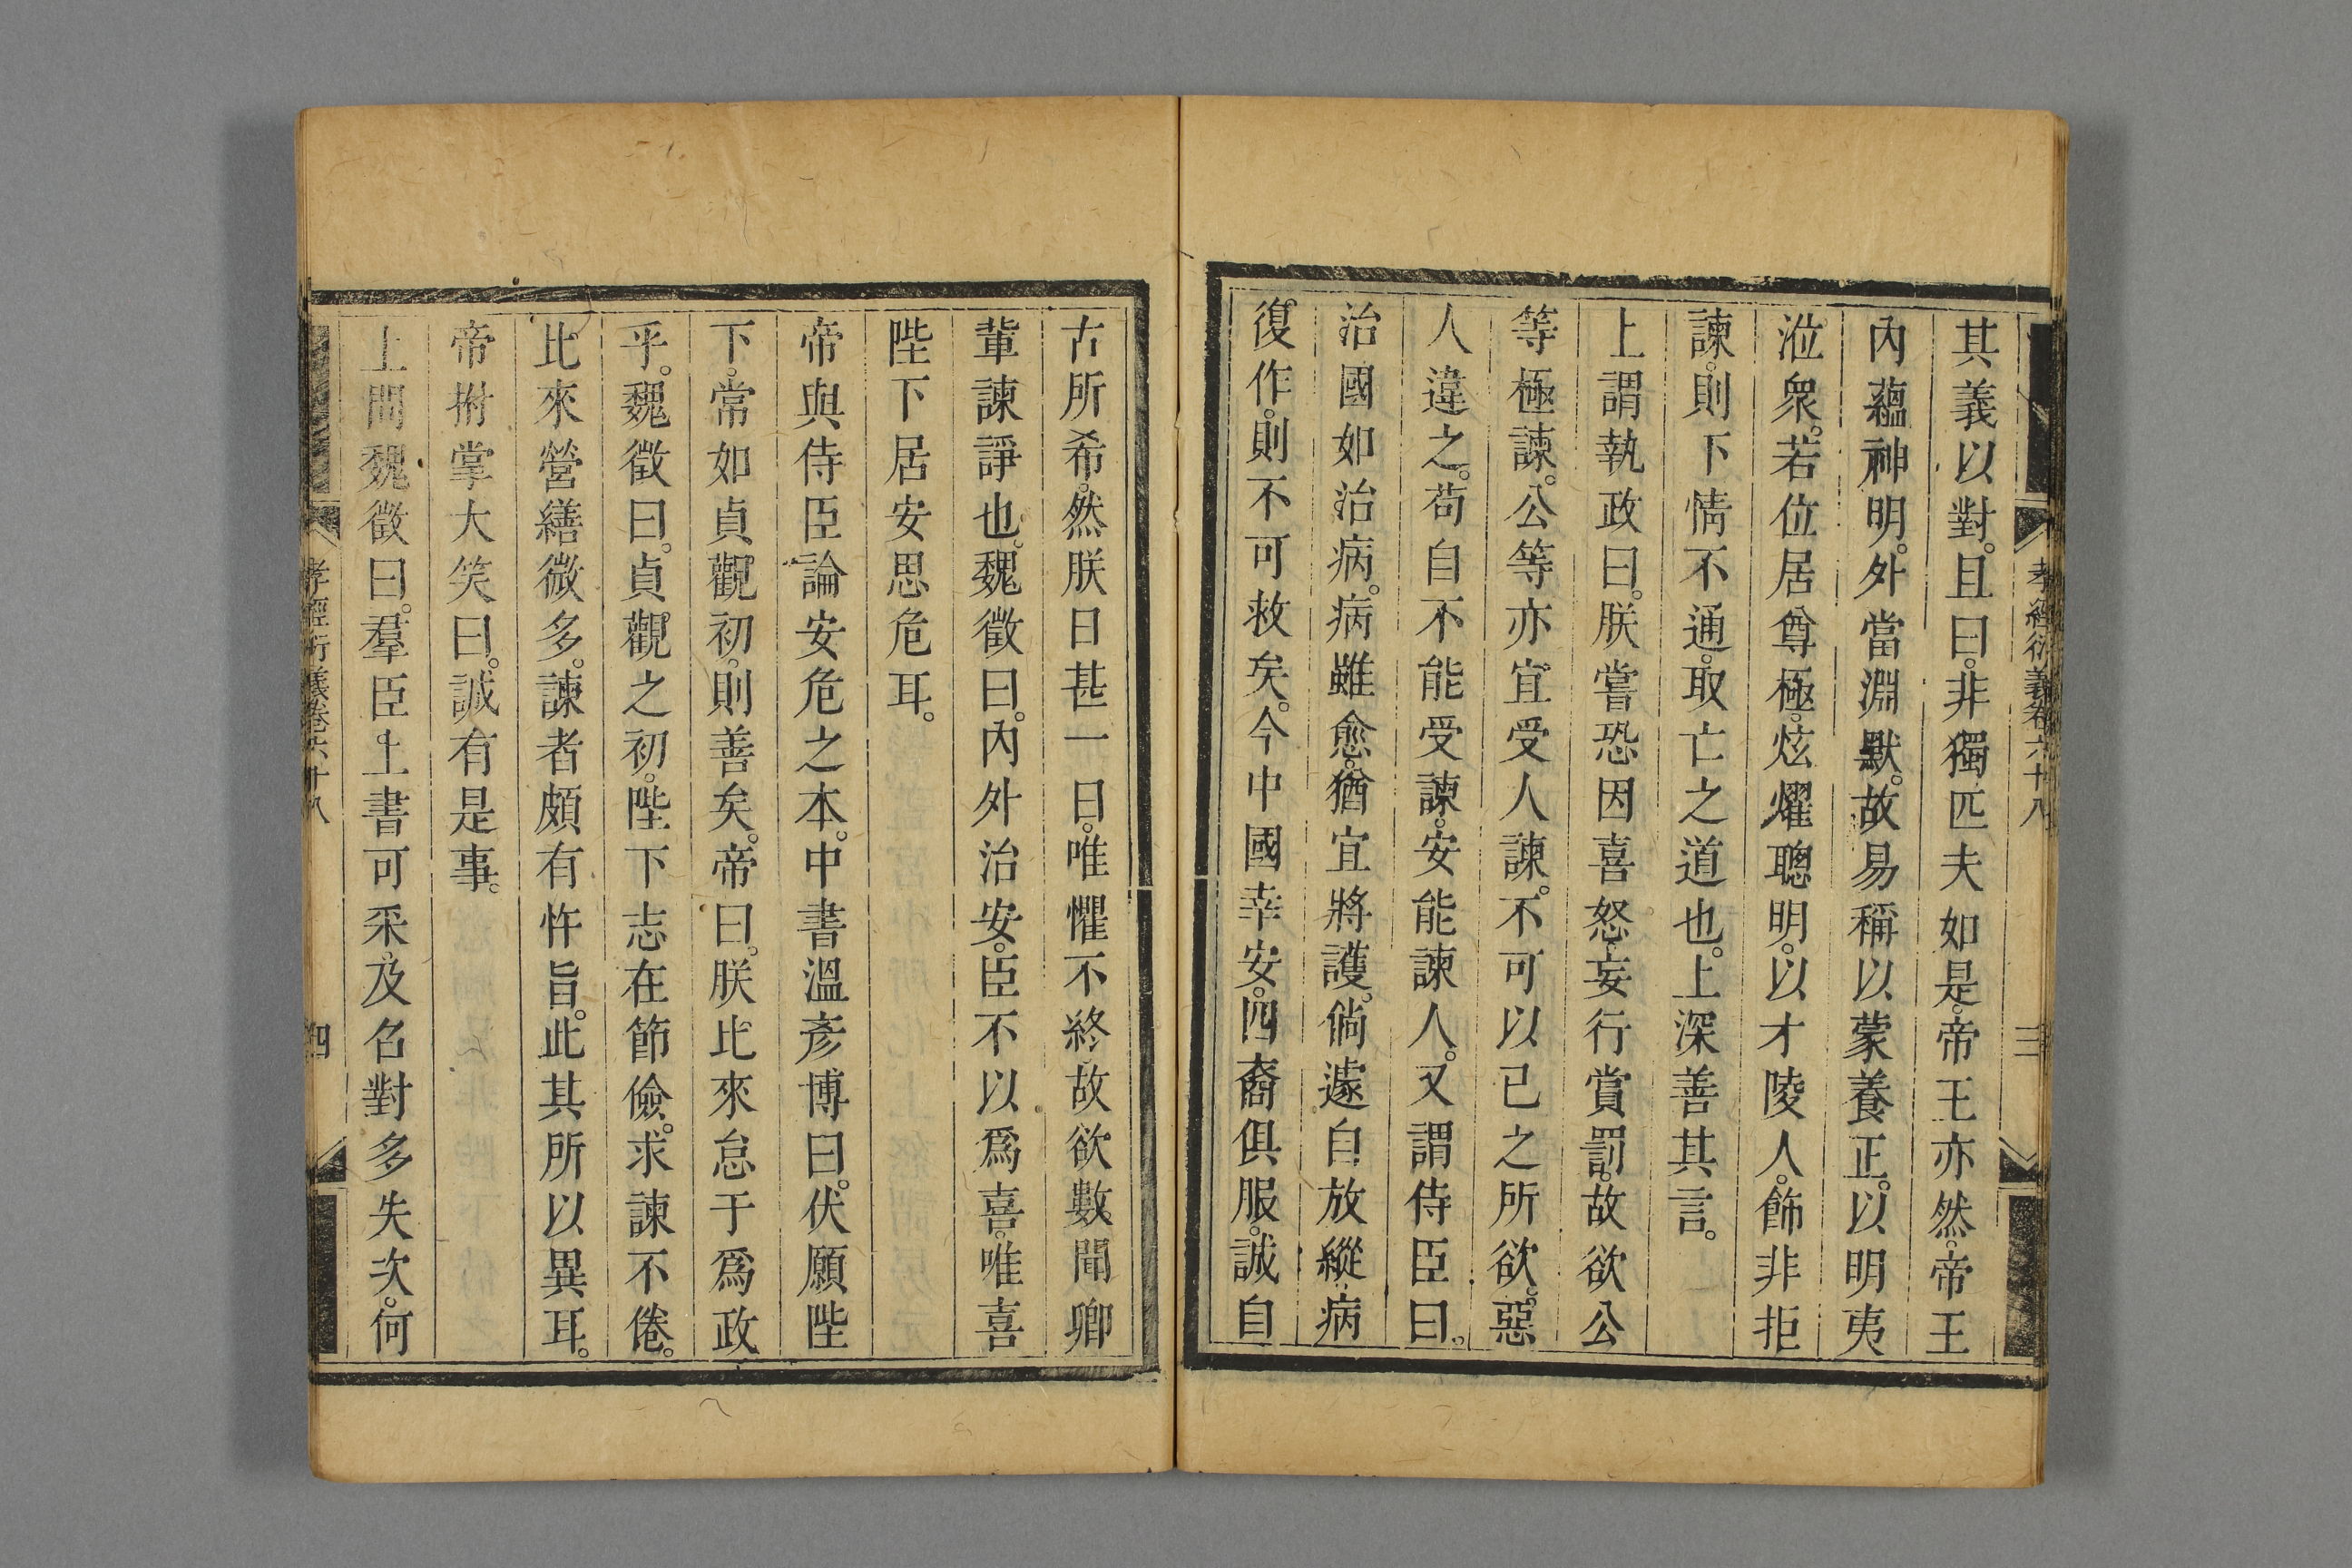 孝經衍義卷六十八 三
其義以對。且曰。非獨匹夫如是。帝王亦然。帝王
內蘊神明。外當淵默。故易稱以蒙養正。以明夷
涖衆。若位居尊極。炫燿聰明。以才陵人。飾非拒
諫。則下情不通。取亡之道也。上深善其言。
上謂執政曰。朕嘗恐因喜怒。妄行賞罰。故欲公
等極諫。公等亦宜受人諫。不可以已之所欲。惡
人違之。苟自不能受諫。安能諫人。又謂侍臣曰。
治國如治病。病雖愈。猶宜將護。倘遽自放縱。病
復作。則不可救矣。今中國幸安。四裔俱服。誠自
古所希。然朕日甚一日。唯懼不終。故欲數聞卿
輩諫諍也。魏徵曰。內外治安。臣不以爲喜。唯喜
陛下居安思危耳。
帝與侍臣論安危之本。中書溫彥博曰。伏願陛
下。常如貞觀初。則善矣。帝曰。朕比來怠于爲政
乎。魏徵曰。貞觀之初。陛下志在節儉。求諫不倦。
比來營繕微多。諫者頗有忤旨。此其所以異耳。
帝拊掌大笑曰。誠有是事。
上問魏徵曰。羣臣。上書可采。及名對多失次。何
孝經衍義卷六十八 四